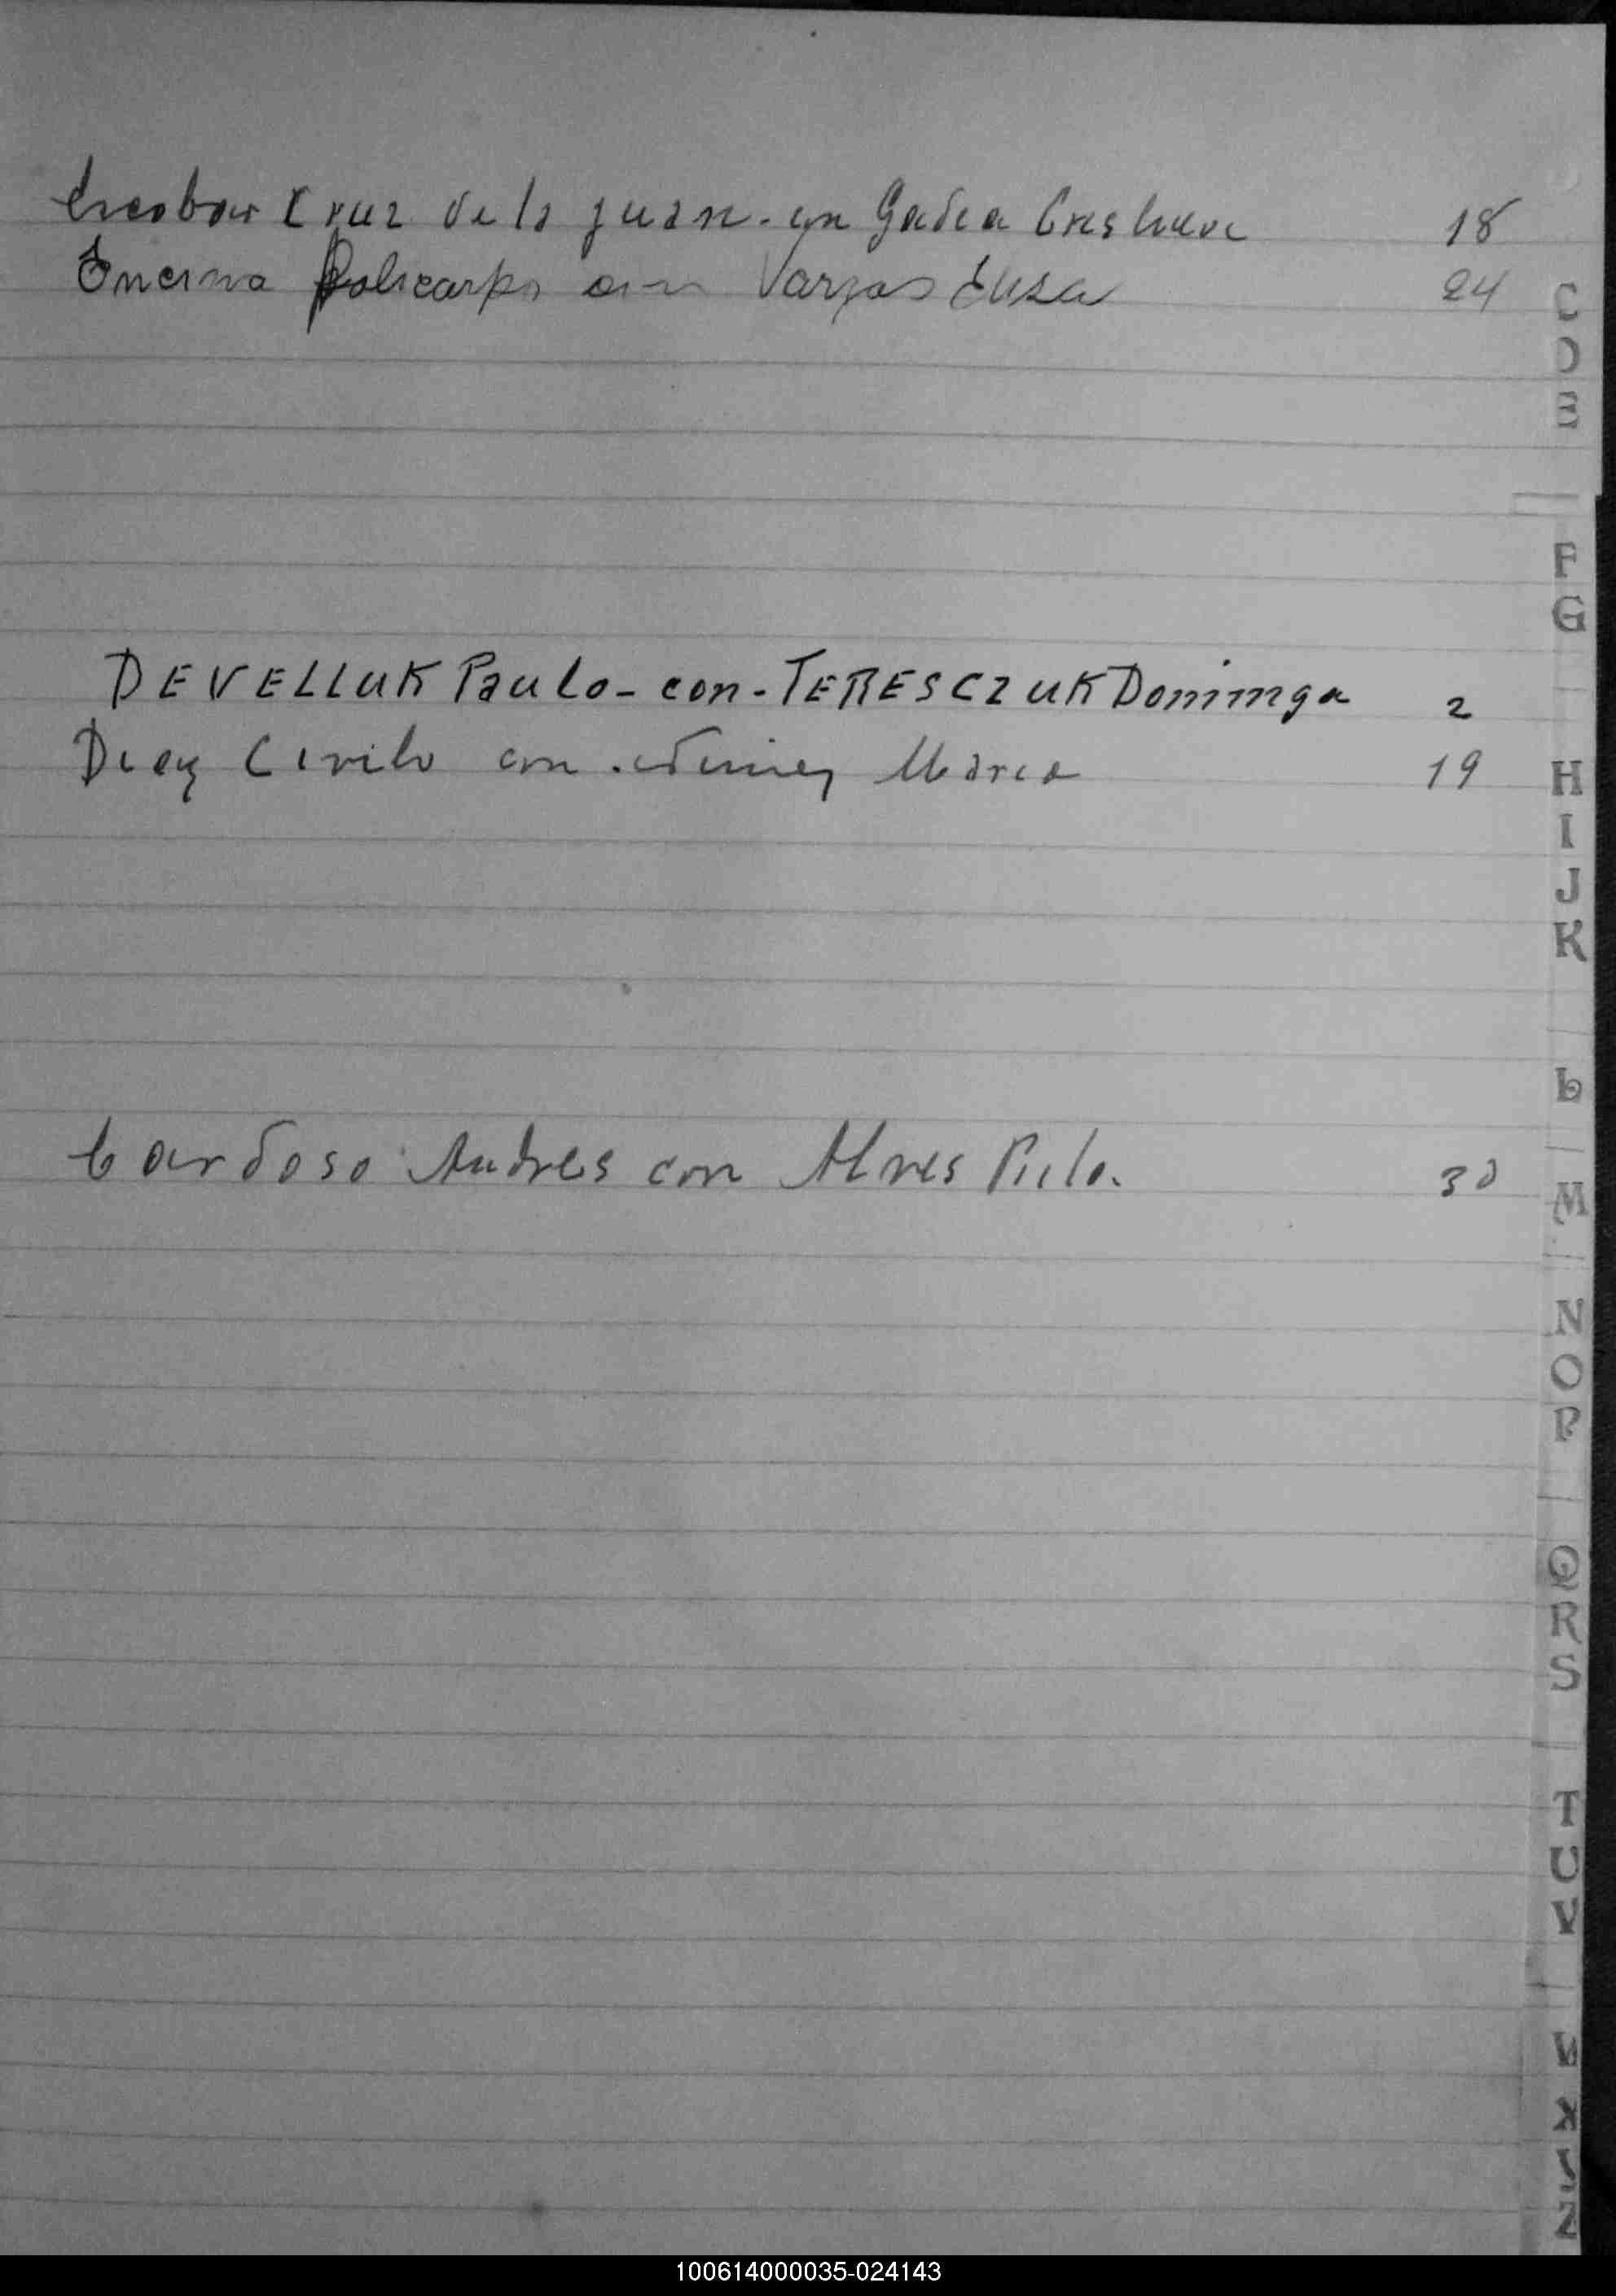 Escobar Cruz de la Juan - con Gadea Cristina 18
Encina Policarpo con Vargas Elisa 24
DEVELLUK Paulo - con - TERESCZUK Dominga 2
Diez Cirilo con María 19
Cardoso Andres con Alves 30
C
D
E
F
G
H
I
J
K
L
M
N
O
P
Q
R
S
T
U
V
X
Z
100614000035-024143